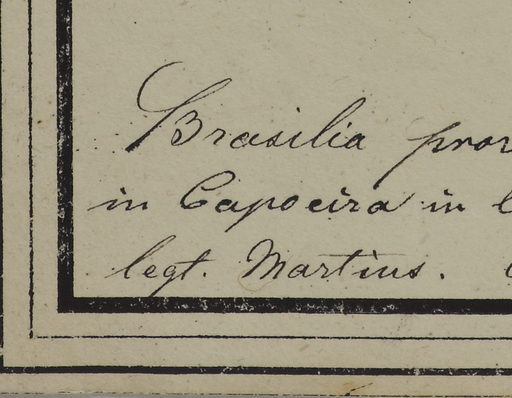 Brasilia prov
in Capoeira in
legt. Martius.